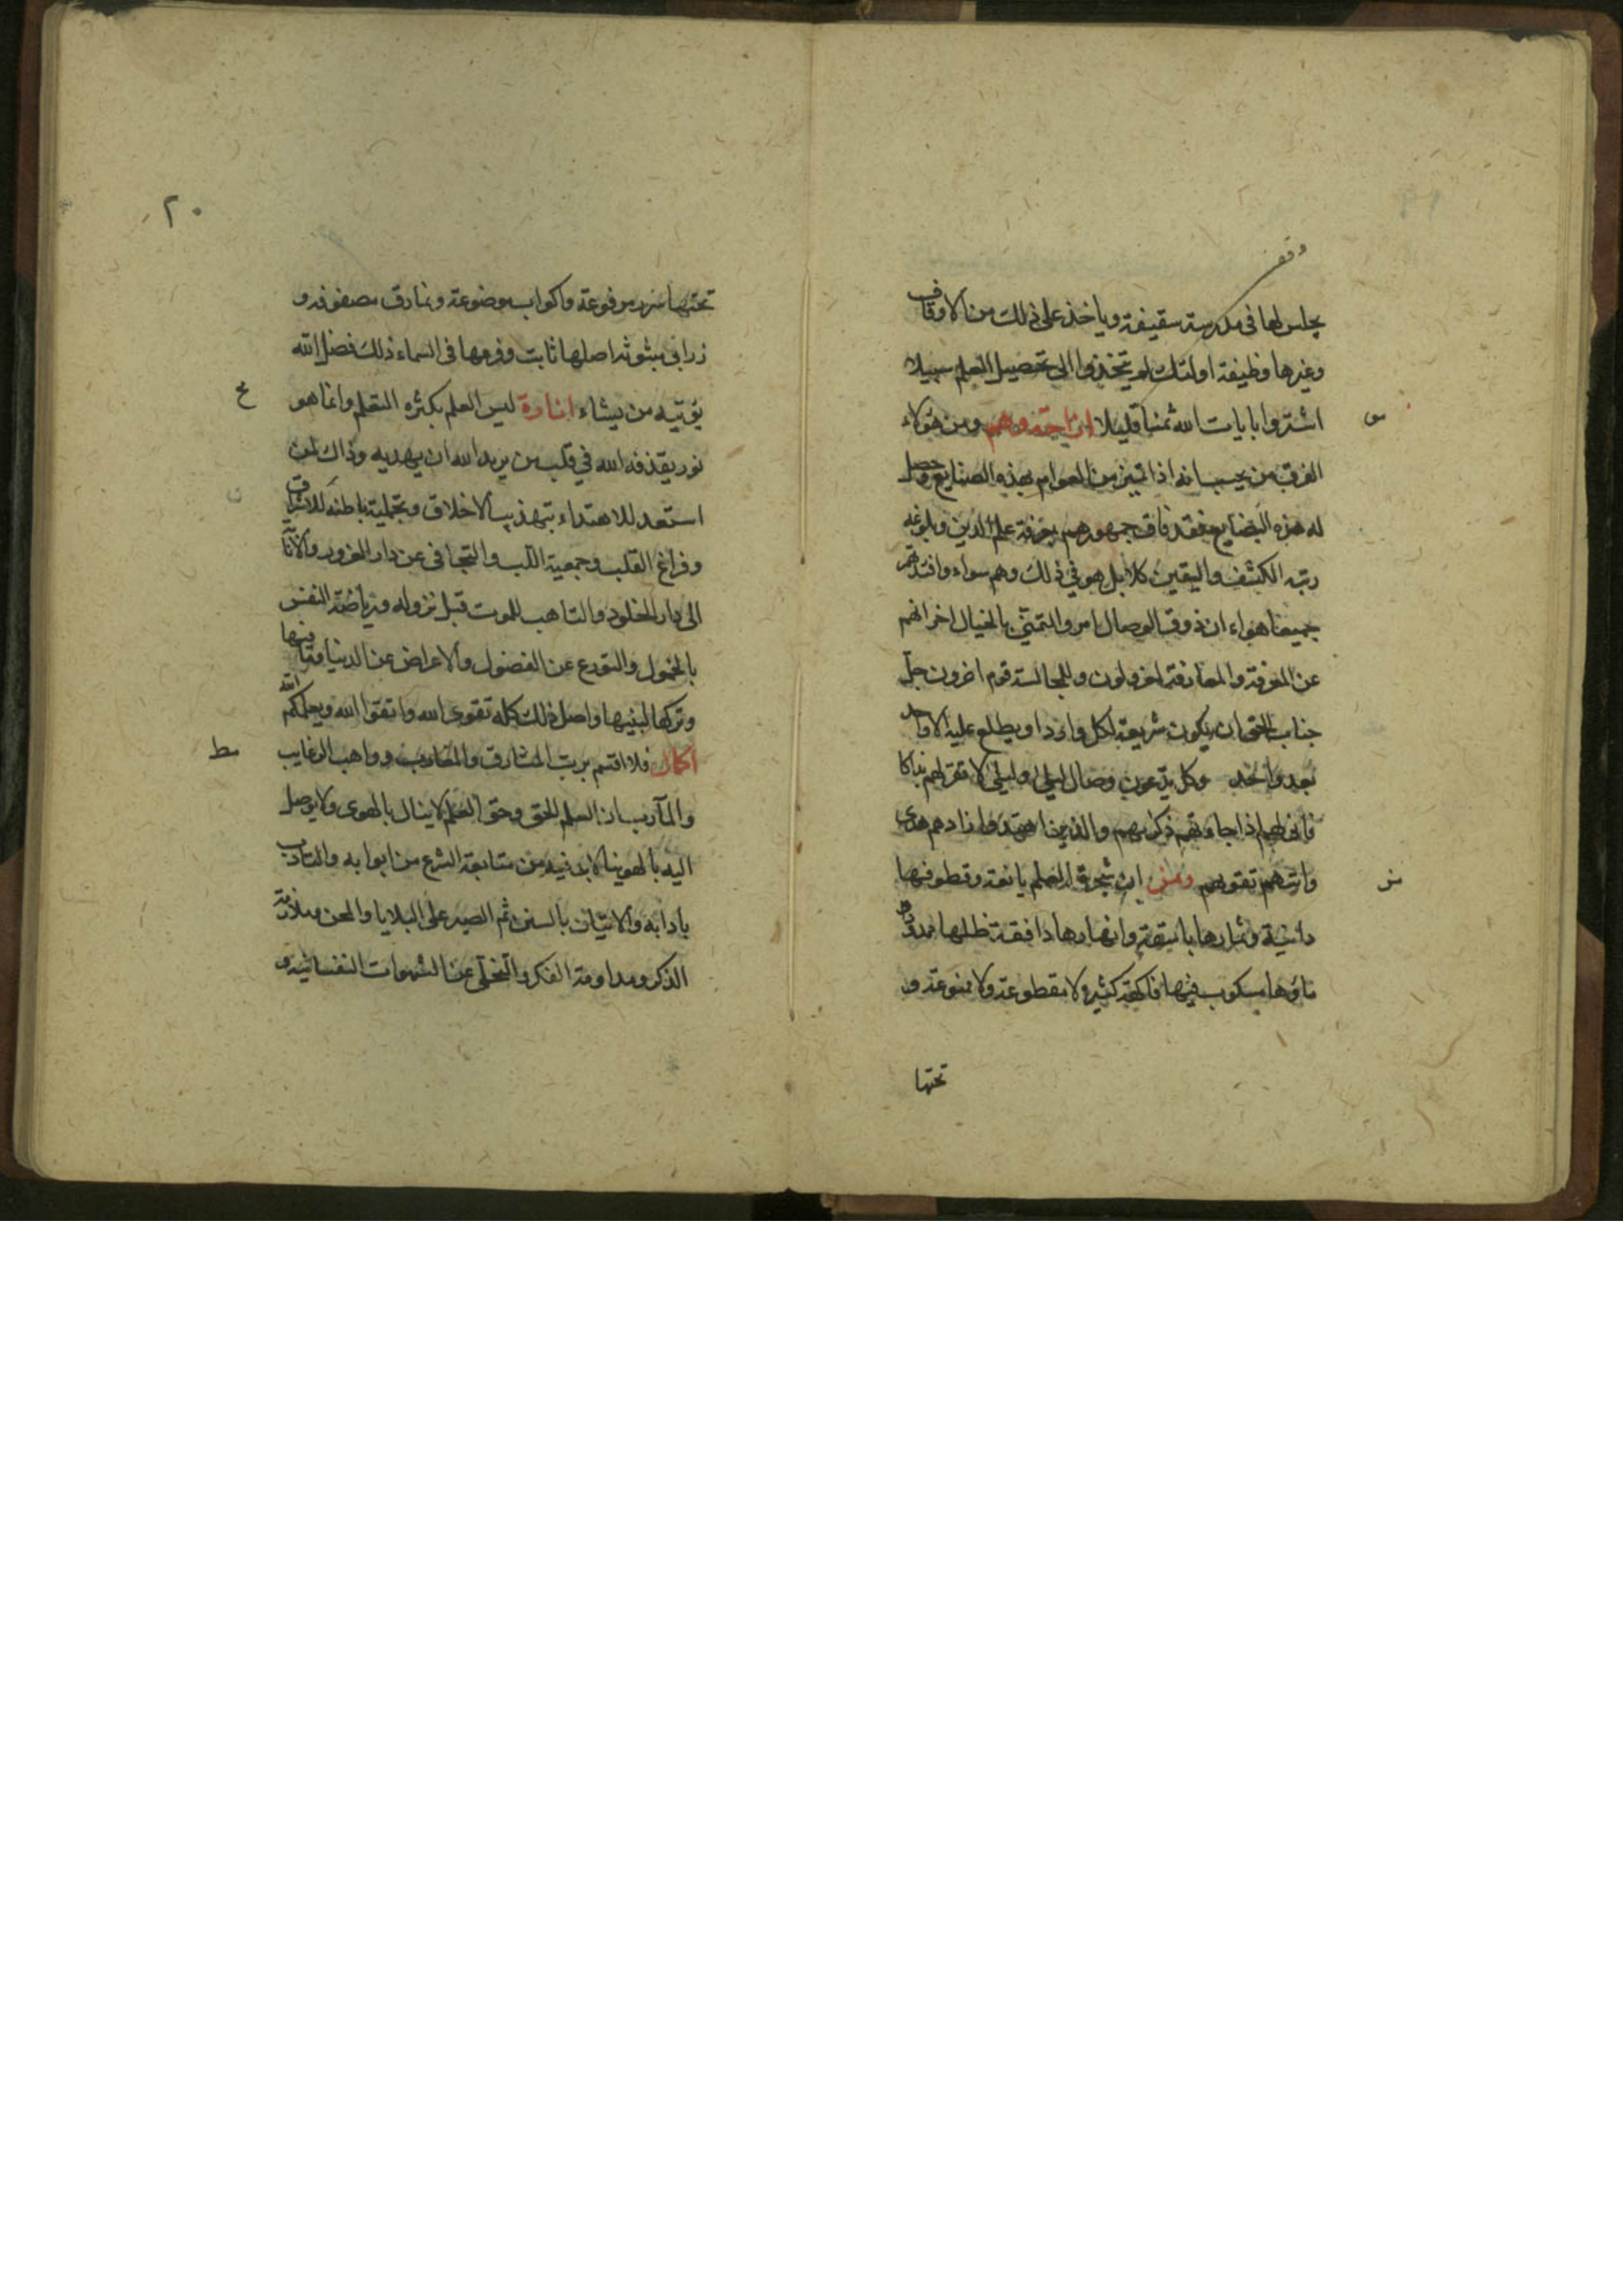 وقف
يجلس لها في مدرسة سقيفة وياخذ على ذلك من الاوقاف
وغيرها وظيفة اولئك لم يتخذوا الى تحصيل العلم سبيلا
اشتروا بايات الله ثمنا قليلا ازاحة وهم ومن هولاء
الفرق من يحسب انه اذا تميز من العوام بهذه الصنايع وحصل
له هذه البضايع فقد فاق جمهورهم بمعرفة علم الدين وبلوغه
رتبة الكشف واليقين كلا بل هو في ذلك وهم سواء وافئدتهم
جميعا هواء ان ذوق الوصال امر والتمني بالخيال اخر انهم
عن المعرفة والمعارفة لمعزولون وللمجالسة قوم اخرون جل
جناب الحق ان يكون شريعة لكل وارد او يطلع عليه الا واحد
بعد واحد وكل يدعون وصال ليلى وليلى لا تقر لهم بذاكا
فانى لهم اذا جاءتهم ذكراهم والذين اهتدوا زادهم هدى
واتيهم تقويهم ان شجرة العلم يانعة وقطوفها
دانية وثمارها باسقة وانهارها دافقة ظلها ممدود
ماؤها مسكوب فيها فاكهة كثيرة لا مقطوعة ولا ممنوعة و
تحتها
س
٢٠
تحتها سرر مرفوعة واكواب موضوعة ونمارق مصفوفة و
زرابي مبثوثة اصلها ثابت وفرعها في السماء ذلك فضل الله
يؤتيه من يشاء انارة ليس العلم بكثرة التعلم وانما هو
نور يقذفه الله في قلب من يريد الله ان يهديه وذاك لمن
استعد للاهتداء بتهذيب الاخلاق وتحلية باطنه للاشراق
وفراغ القلب وجمعية اللب والتجافي عن دار الغرور والانابة
الى دار الخلود والتاهب للموت قبل نزوله ورياضة النفس
بالخمول والتورع عن الفضول والاعراض عن الدنيا وما فيها
وتركها لبنيها واصل ذلك كله تقوى الله واتقوا الله ويعلمكم الله
اكمال فلا اقسم برب المشارق والمغارب وواهب الرغايب
والمآرب ان العلم الحق وحق العلم لا ينال بالهوى ولا يوصل
اليه بالهوينا لابد فيه من متابعة الشرع من ابوابه والتادب
بادابه والاتيان بالسنن ثم الصبر على البلايا والمحن وملازمة
الذكر ومداومة الفكر والتخلي عن الشهوات النفسانية و
ح
مط